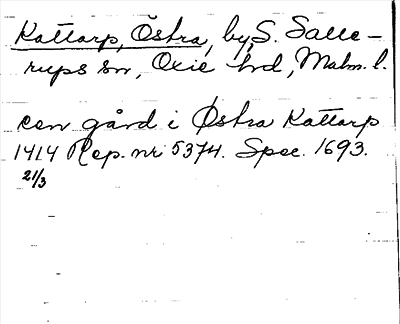 Kattarp, Östra, by, S. Salle-
rups sn, Oxie hrd, Malm. l.
een gård i Østra Kattarp
1414 Rep. nr 5374. Spec. 1693.
21/3